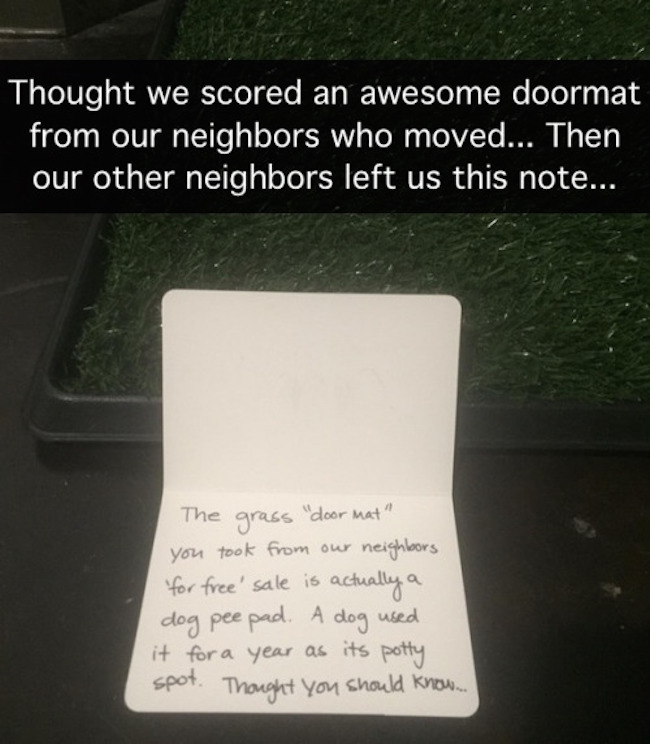 Thought we scored an awesome doormat
from our neighbors who moved... Then
our other neighbors left us this note...
The grass "door mat"
you took from our neighbors
'for free' sale is actually a
dog pee pad. A dog used
it for a year as its potty
spot. Thought you should know...